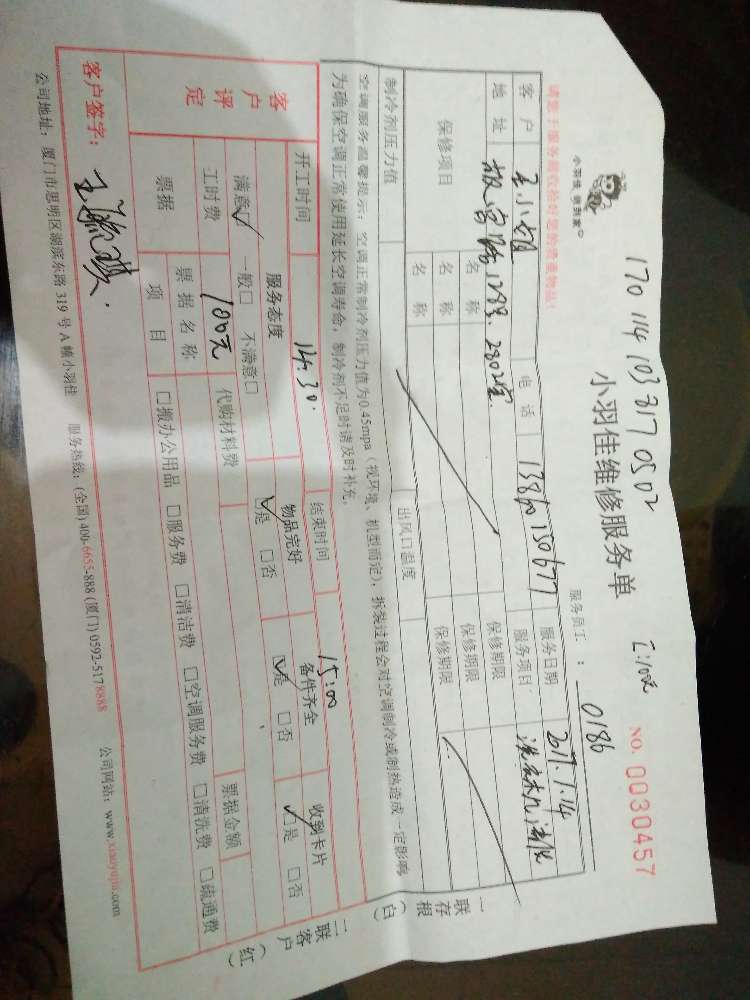 170114103817 0502
小羽佳 做到家
小羽佳维修服务单
NO. 0030457
服务员工：0186
请您于服务前收检好您的贵重物品！
客户 王小姐 电话 服务日期 2017.1.14
地址 2802室 服务项目
保修项目 名称 保修期限
名称 保修期限
名称 保修期限
制冷剂压力值 出风口温度
空调服务温馨提示：空调正常制冷剂压力值为0.45mpa（视环境、机型而定），拆装过程会对空调制冷或制热造成一定影响
为确保空调正常使用延长空调寿命，制冷剂不足时请及时补充。
一联存根（白）
二联客户（红）
客户评定
开工时间 14:30. 结束时间 15:00
服务态度 物品完好 备件齐全 收到卡片
满意☑ 一般□ 不满意□ ☑是 □否 ☑是 □否 ☑是 □否
工时费 100元 代购材料费 票据金额
票据 票据名称
项目 □搬办公用品 □服务费 □清洁费 □空调服务费 □清洗费 □疏通费
客户签字：
公司地址：厦门市思明区湖滨东路 319 号 A 幢小羽佳 服务热线：(全国)400-6655-888 (厦门) 0592-5178888 公司网站：www.xiaoyujia.com